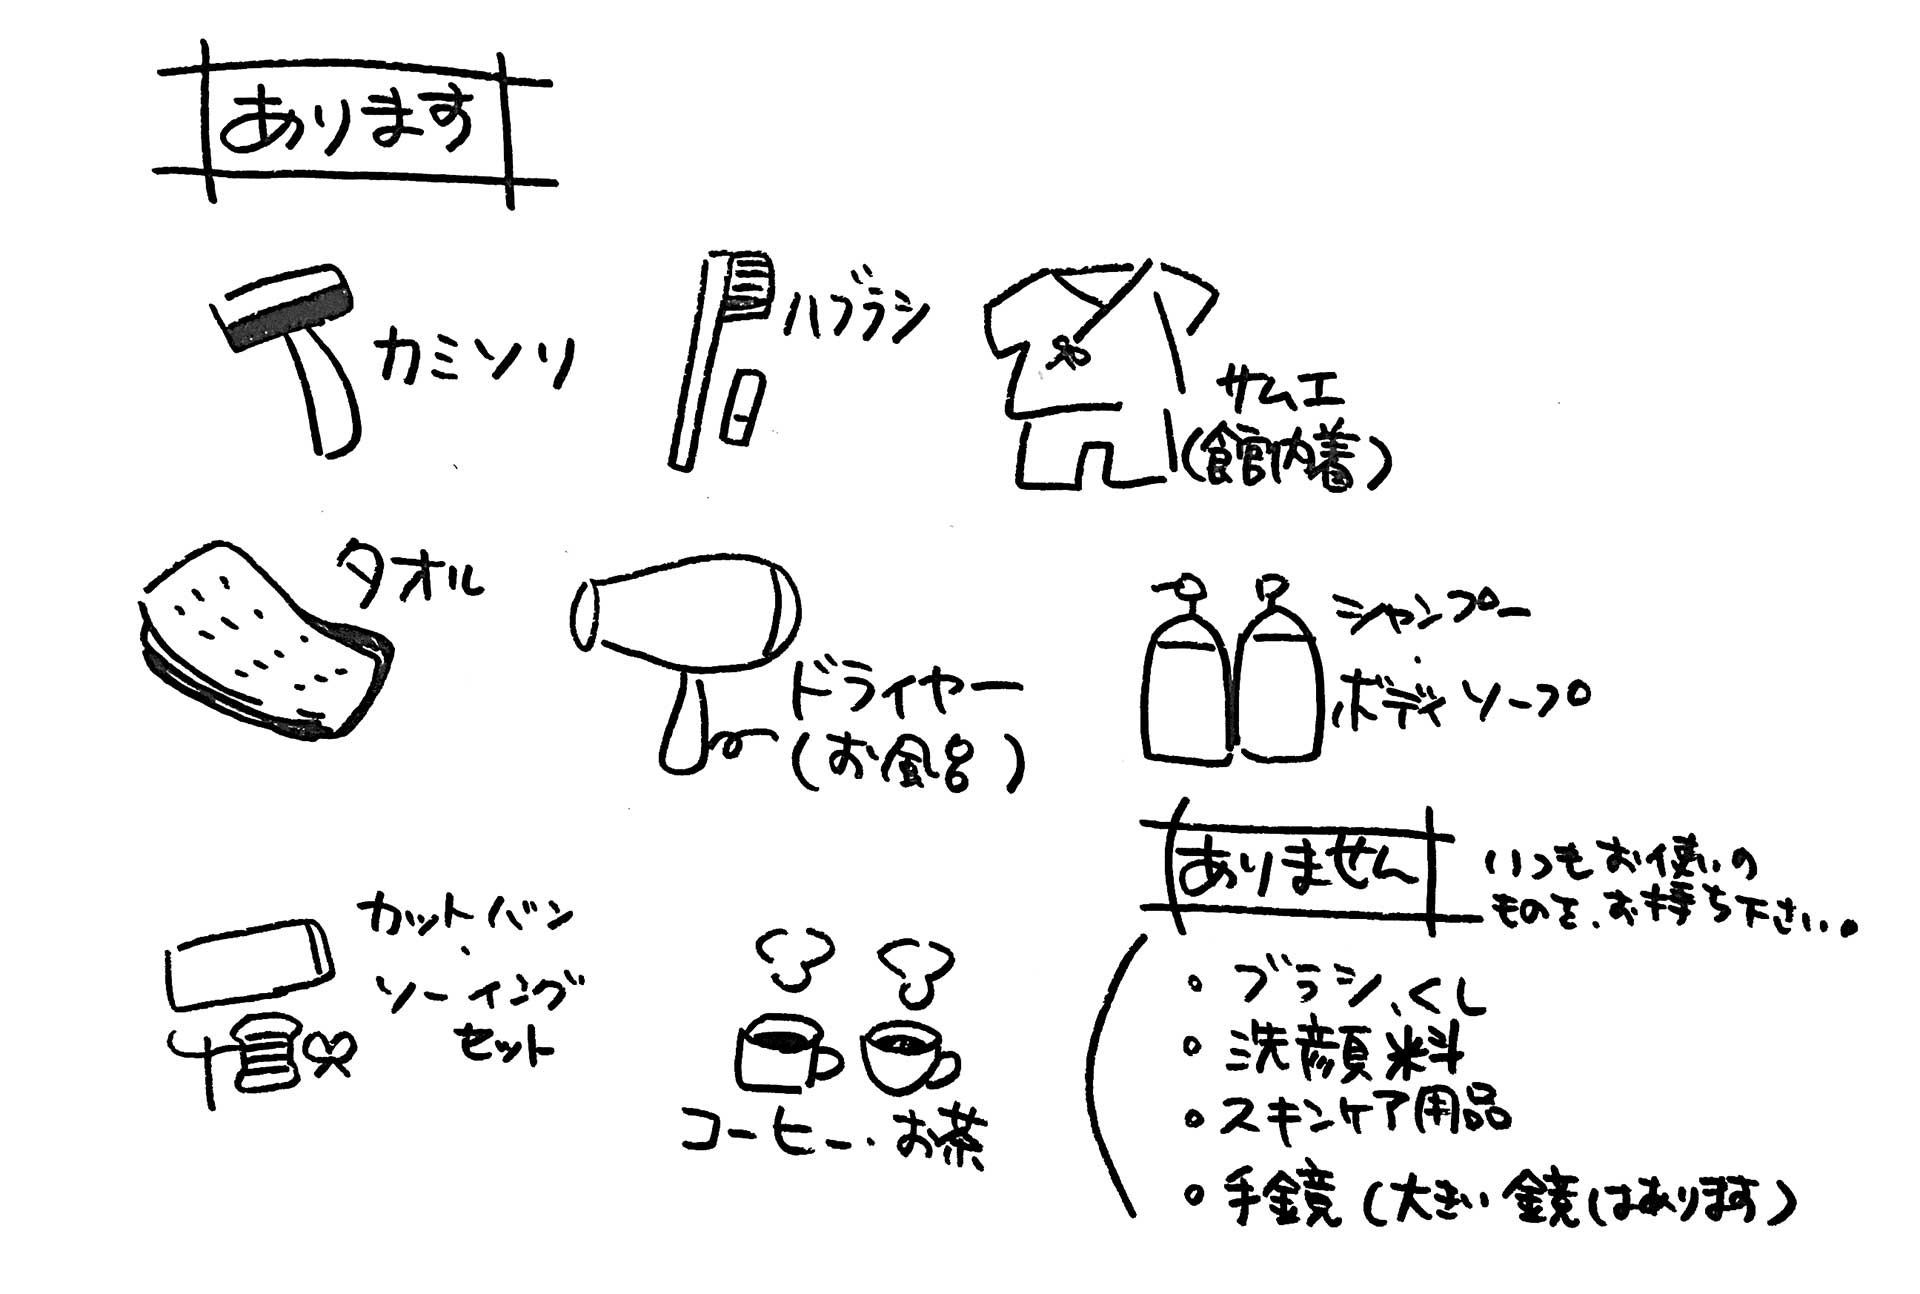 あります
カミソリ
ハブラシ
サムエ
(館内着)
タオル
ドライヤー
(お風呂)
シャンプー
・
ボディソープ
カットバン
・
ソーイング
セット
コーヒー・お茶
ありません
いつもお使いの
ものを、お持ち下さい。
・ブラシ、くし
・洗顔料
・スキンケア用品
・手鏡(大きい鏡はあります)